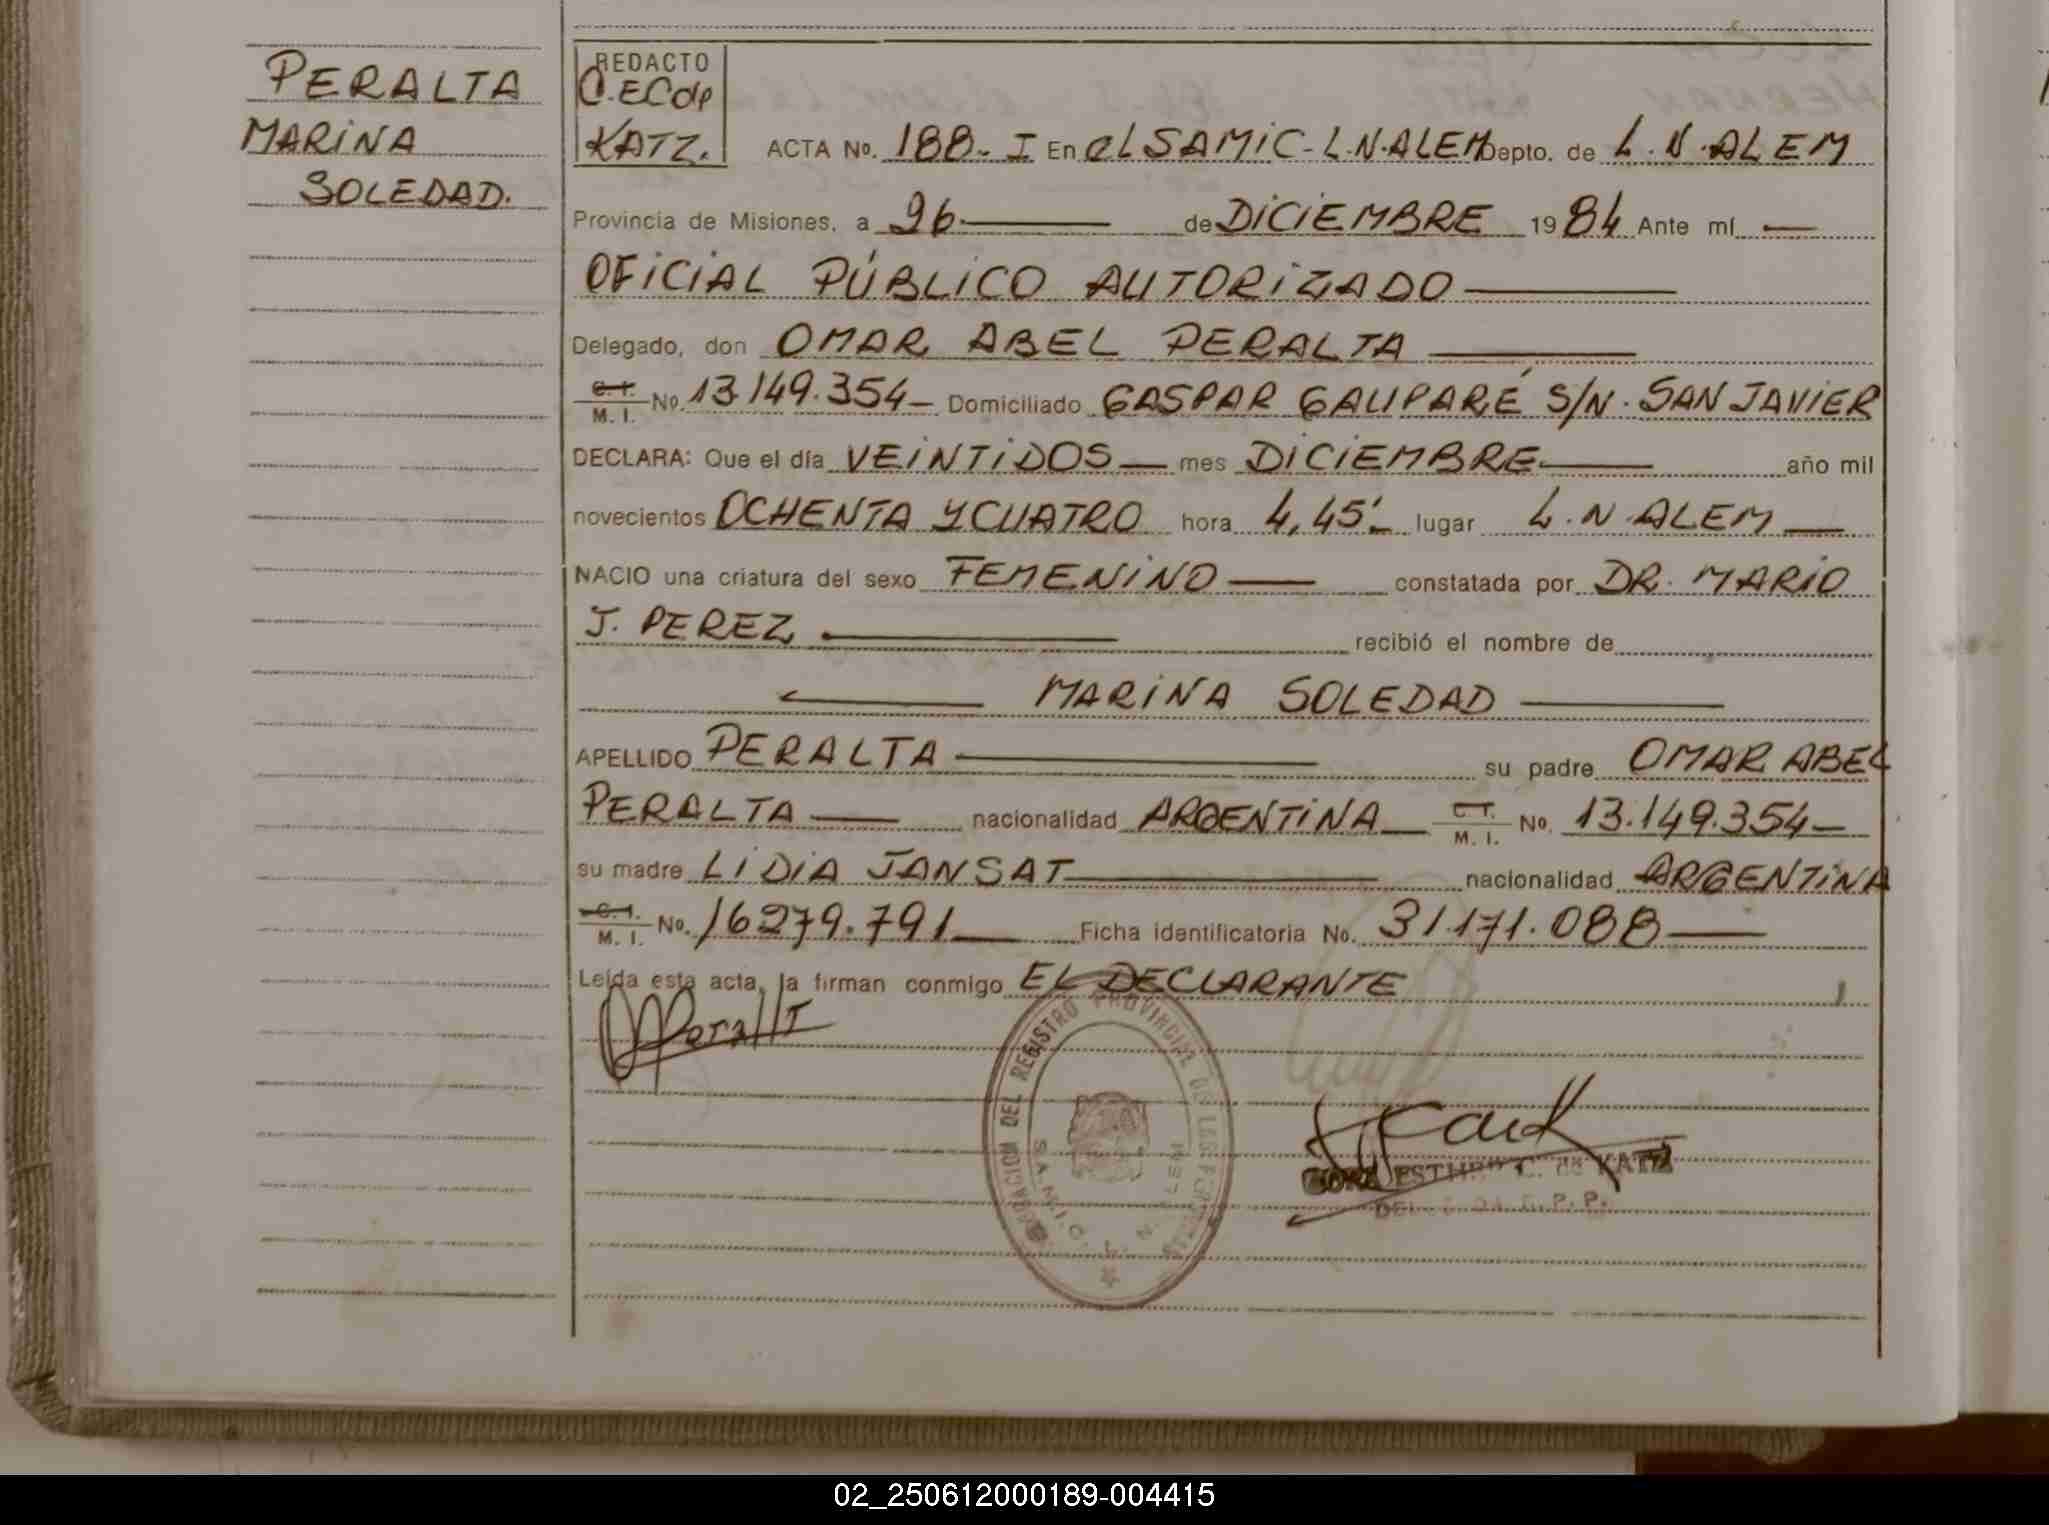 PERALTA
MARINA
SOLEDAD.
REDACTO
C.ECdp
KATZ.
ACTA No. 188-I En el SAMIC-L.N.ALEM Depto. de L.N.ALEM
Provincia de Misiones, a 26 de DICIEMBRE 1984 Ante mí
OFICIAL PÚBLICO AUTORIZADO
Delegado, don OMAR ABEL PERALTA
C.I. M.I. No. 13.149.354 Domiciliado GASPAR GAUPARÉ S/N. SAN JAVIER
DECLARA: Que el día VEINTIDOS mes DICIEMBRE año mil
novecientos OCHENTA Y CUATRO hora 4,45' lugar L.N.ALEM
NACIO una criatura del sexo FEMENINO constatada por DR. MARIO
J. PEREZ recibió el nombre de
MARINA SOLEDAD
APELLIDO PERALTA su padre OMAR ABEL
PERALTA nacionalidad ARGENTINA C.I. M.I. No. 13.149.354
su madre LIDIA JANSAT nacionalidad ARGENTINA
C.I. M.I. No. 16279.791 Ficha identificatoria No. 31.171.088
Leída esta acta, la firman conmigo EL DECLARANTE
DEL REGISTRO PROVINCIAL DE LAS PERSONAS
S.A.M.I.C. L. N. ALEM
ESTHER C. de KATZ
02_250612000189-004415